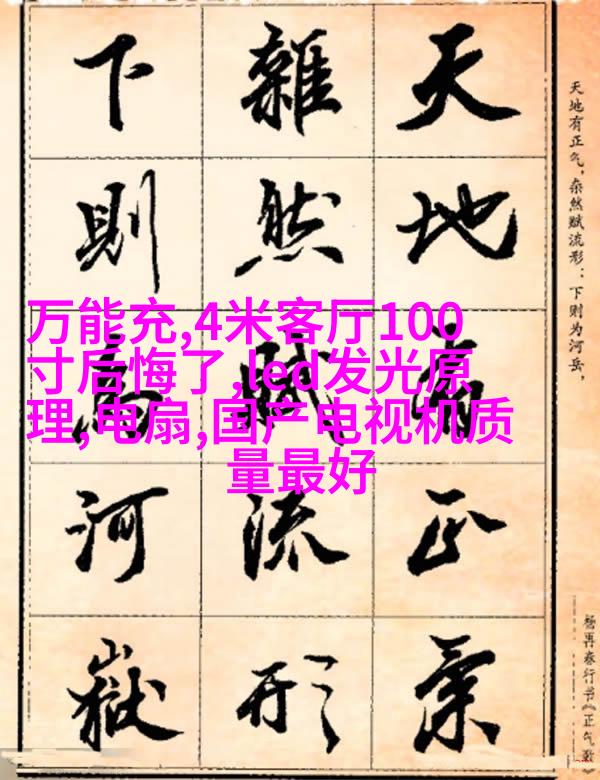 天地有正气,杂然赋流形:下则为河岳,
杨再春行书《正气歌》
天地有正氣
雜然賦流形
下則為河嶽
万能充,4米客厅100
寸后悔了,led发光原
理,电扇,国产电视机质
量最好